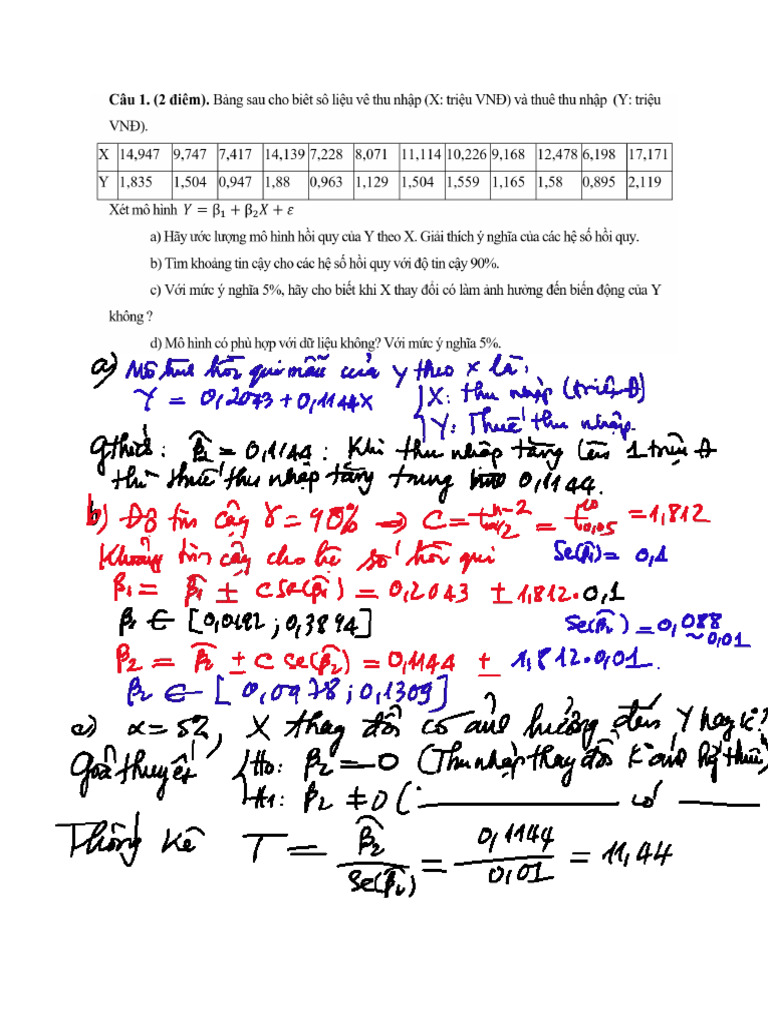 Câu 1. (2 điểm). Bảng sau cho biết số liệu về thu nhập (X: triệu VNĐ) và thuế thu nhập (Y: triệu
VNĐ).
X 14,947 9,747 7,417 14,139 7,228 8,071 11,114 10,226 9,168 12,478 6,198 17,171
Y 1,835 1,504 0,947 1,88 0,963 1,129 1,504 1,559 1,165 1,58 0,895 2,119
Xét mô hình Y = β₁ + β₂X + ε
a) Hãy ước lượng mô hình hồi quy của Y theo X. Giải thích ý nghĩa của các hệ số hồi quy.
b) Tìm khoảng tin cậy cho các hệ số hồi quy với độ tin cậy 90%.
c) Với mức ý nghĩa 5%, hãy cho biết khi X thay đổi có làm ảnh hưởng đến biến động của Y
không ?
d) Mô hình có phù hợp với dữ liệu không? Với mức ý nghĩa 5%.
a) Mô hình hồi qui mẫu của Y theo X là:
Y = 0,2043 + 0,1144X { X: thu nhập (triệu Đ)
Y: Thuế thu nhập.
Gthích: β̂₂ = 0,1144: Khi thu nhập tăng lên 1 triệu Đ
thì thuế thu nhập tăng trung bình 0,1144.
b) Độ tin cậy γ = 90% ⇒ C = t^{n-2}_{α/2} = t^{10}_{0,05} = 1,812
Khoảng tin cậy cho hệ số hồi qui Se(β̂₁) = 0,1
β₁ = β̂₁ ± C Se(β̂₁) = 0,2043 ± 1,812.0,1
β₁ ∈ [0,0192 ; 0,3894]
Se(β̂₂) = 0,088
~0,01
β₂ = β̂₂ ± C se(β̂₂) = 0,1144 ± 1,812.0,01.
β₂ ∈ [0,0978 ; 0,1309]
c) α = 5%, X thay đổi có ảnh hưởng đến Y hay k?
Giả thuyết { H0: β₂ = 0 (Thu nhập thay đổi k ảnh hg thuế)
H1: β₂ ≠ 0 ( có
Thống kê T = β̂₂ / Se(β̂₂) = 0,1144 / 0,01 = 11,44